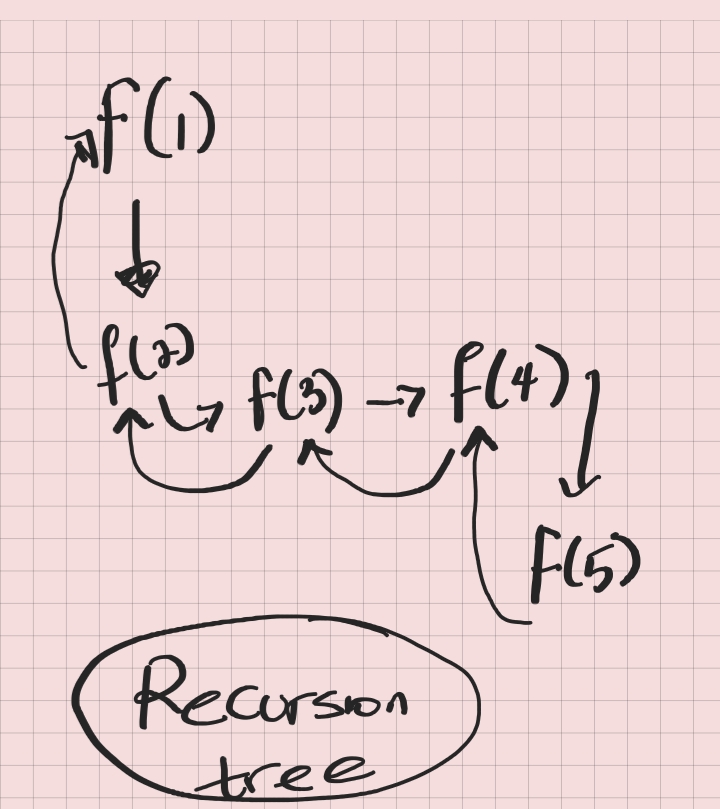 f(1)
f(2) f(3) f(4)
f(5)
Recursion
tree